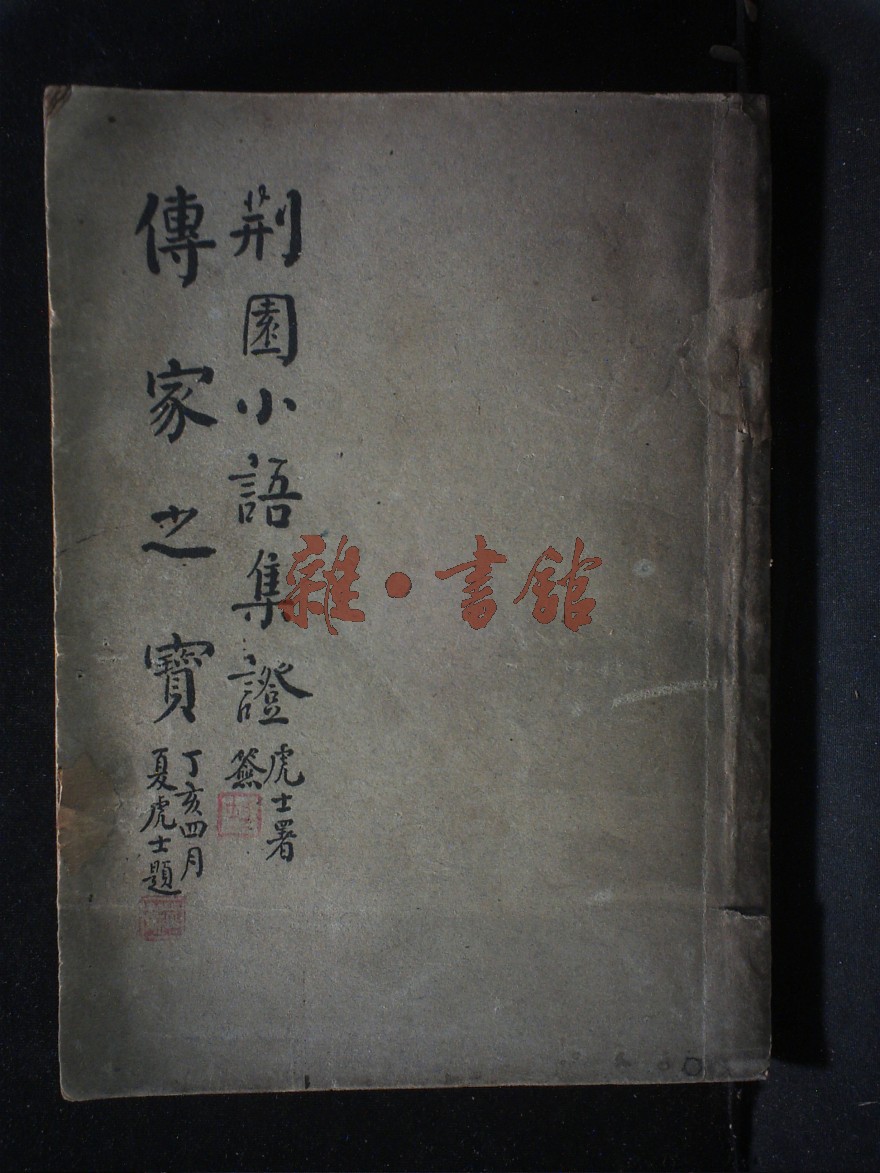 荆園小語集證
虎士署
簽
傳家之寶
丁亥四月
夏虎士題
雜·書館